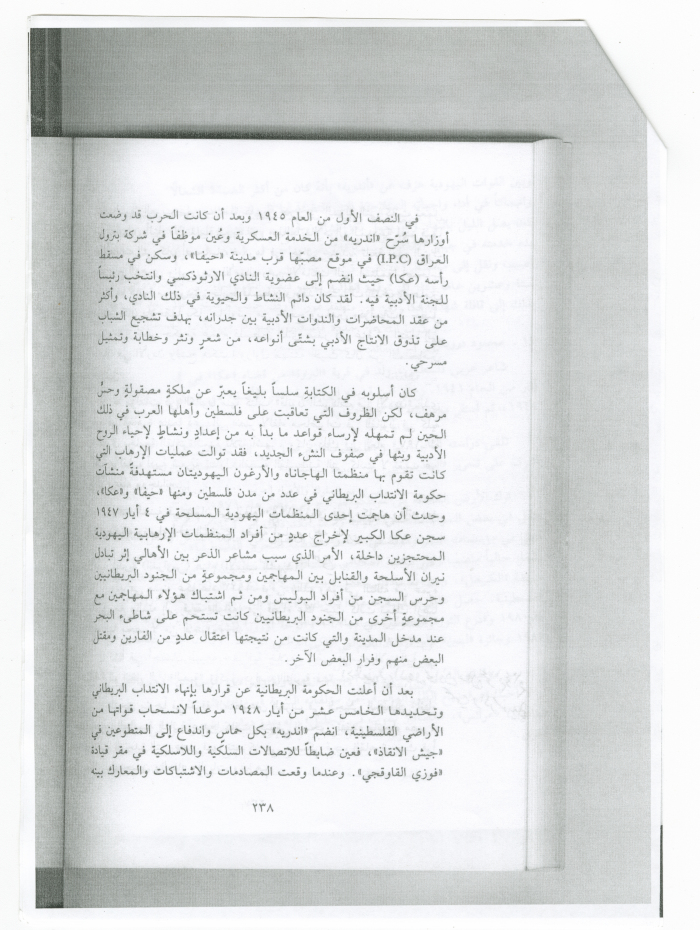 في النصف الأول من العام ١٩٤٥ وبعد أن كانت الحرب قد وضعت
أوزارها سُرّح «اندريه» من الخدمة العسكرية وعُين موظفاً في شركة بترول
العراق (I.P.C) في موقع مصبّها قرب مدينة «حيفا»، وسكن في مسقط
رأسه (عكا) حيث انضم إلى عضوية النادي الارثوذكسي وانتخب رئيساً
للجنة الأدبية فيه. لقد كان دائم النشاط والحيوية في ذلك النادي، وأكثر
من عقد المحاضرات والندوات الأدبية بين جدرانه، بهدف تشجيع الشباب
على تذوق الانتاج الأدبي بشتّى أنواعه، من شعرٍ ونثر وخطابة وتمثيل
مسرحي.
كان أسلوبه في الكتابةِ سلساً بليغاً يعبّر عن ملكةٍ مصقولةٍ وحسٍّ
مرهف، لكن الظروف التي تعاقبت على فلسطين وأهلها العرب في ذلك
الحين لم تمهله لإرساء قواعد ما بدأ به من إعدادٍ ونشاطٍ لإحياء الروح
الأدبية وبثها في صفوف النشء الجديد، فقد توالت عمليات الإرهاب التي
كانت تقوم بها منظمتا الهاجاناه والأرغون اليهوديتان مستهدفةً منشآت
حكومة الانتداب البريطاني في عدد من مدن فلسطين ومنها «حيفا» و«عكا»،
وحدث أن هاجمت إحدى المنظمات اليهودية المسلحة في ٤ أيار ١٩٤٧
سجن عكا الكبير لإخراج عددٍ من أفراد المنظمات الإرهابية اليهودية
المحتجزين داخلة، الأمر الذي سبب مشاعر الذعر بين الأهالي إثر تبادل
نيران الأسلحة والقنابل بين المهاجمين ومجموعةٍ من الجنود البريطانيين
وحرس السجن من أفراد البوليس ومن ثم اشتباك هؤلاء المهاجمين مع
مجموعةٍ أخرى من الجنود البريطانيين كانت تستحم على شاطىء البحر
عند مدخل المدينة والتي كانت من نتيجتها اعتقال عددٍ من الفارين ومقتل
البعض منهم وفرار البعض الآخر.
بعد أن أعلنت الحكومة البريطانية عن قرارها بإنهاء الانتداب البريطاني
وتحديدها الخامس عشر من أيار ١٩٤٨ موعداً لانسحاب قواتها من
الأراضي الفلسطينية، انضم «اندريه» بكل حماسٍ واندفاع إلى المتطوعين في
«جيش الانقاذ»، فعين ضابطاً للاتصالات السلكية واللاسلكية في مقر قيادة
«فوزي القاوقجي». وعندما وقعت المصادمات والاشتباكات والمعارك بينه
٢٣٨